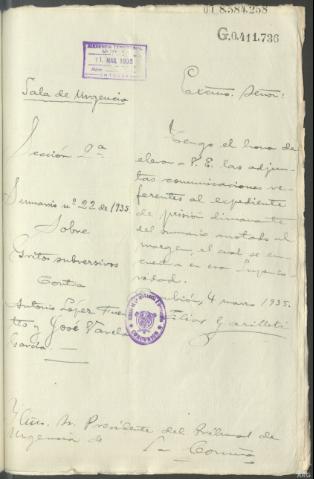 01 8.584.258
G.0.411.736
11 MAR 1935
Sala de Urgencia
Sección 2ª
Sumario nº 22 de 1935
Sobre
Gritos subversivos
Contra
Antonio López
y José Varela
García
Excmo. Señor:
Tengo el honor de
elevar a V.E. las adjun-
tas comunicaciones re-
ferentes al expediente
de prisión dimanante
del sumario anotado al
margen, el cual se en-
cuentra en esa Superio-
ridad.
4 marzo 1935.
Presidente del Tribunal de
Urgencia de La Coruña